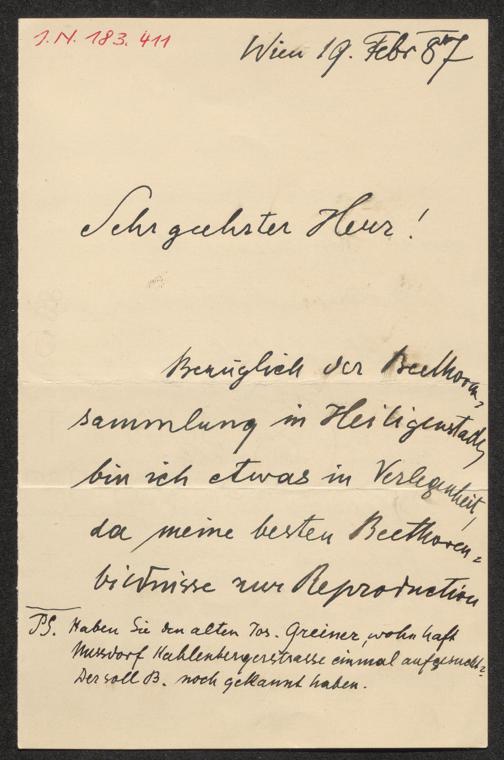 J.N. 183.411
Wien 19. Febr 87
Sehr geehrter Herr!
Bezüglich der Beethoven-
sammlung in Heiligenstadt,
bin ich etwas in Verlegenheit,
da meine besten Beethoven-
bildnisse zur Reproduction
PS. Haben Sie den alten Jos. Greiner, wohnhaft
Nussdorf Kahlenbergerstrasse einmal aufgesucht?
Der soll B. noch gekannt haben.